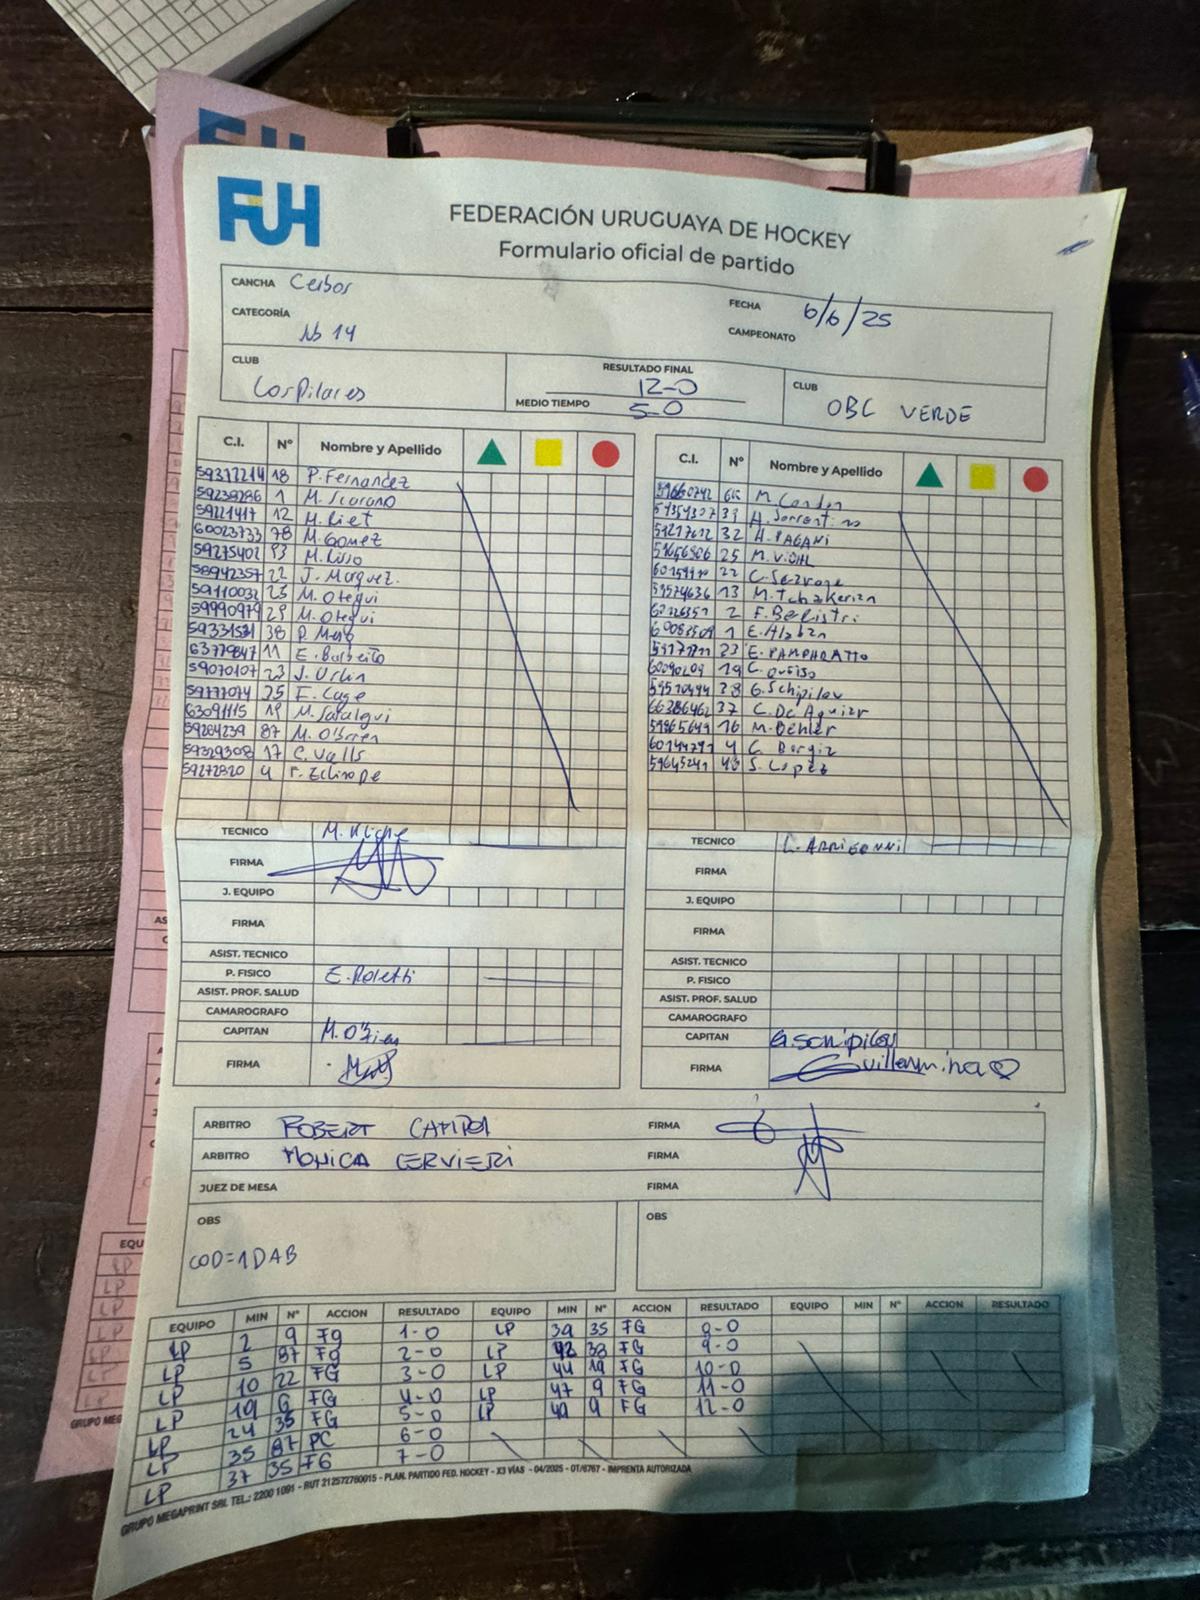 FUH
FEDERACIÓN URUGUAYA DE HOCKEY
Formulario oficial de partido
CANCHA Ceibos
FECHA 6/6/25
CATEGORÍA Sub 14
CAMPEONATO
CLUB Los Pilares
RESULTADO FINAL 12-0
MEDIO TIEMPO 5-0
CLUB OBC VERDE
C.I. Nº Nombre y Apellido
59377214 18 P. Fernandez
59239286 1 M. Scarano
59221417 12 M. Liet
60023733 78 M. Gomez
59275402 93 M. Lisso
58942357 22 J. Marquez.
59110032 25 M. Otegui
59990979 29 M. Otegui
59331531 38 P.
63779847 11 E. Barreito
59070107 23 J. Urlin
59777074 35 F. Cage
63091115 19 M. Saralegui
59284239 87 M. O'Brien
59329308 17 C. Valls
59272820 9 F. Echinope
C.I. Nº Nombre y Apellido
59660742 66 M. Condon
33 A. Sorrentino
59217612 32 A. PAGANI
59656906 25 M. VIDAL
22 C.
59574636 13 M. Tchakerian
2 F. Balistri
1 E. Alaban
23 E. PAMPHRATTO
60090209 19 C.
28 G. Schipilov
66386462 37 C. De Aguiar
59865649 16 M. Oehler
4 C. Borgia
59645241 S. Lopez
TECNICO M. Kliche
FIRMA
J. EQUIPO
FIRMA
ASIST. TECNICO
P. FISICO E. Poletti
ASIST. PROF. SALUD
CAMAROGRAFO
CAPITAN M. O'Brien
FIRMA
TECNICO L. ARRIGONNI
FIRMA
J. EQUIPO
FIRMA
ASIST. TECNICO
P. FISICO
ASIST. PROF. SALUD
CAMAROGRAFO
CAPITAN G. Schipilov
FIRMA Guillermina
ARBITRO ROBERT CAMPOI FIRMA
ARBITRO MONICA CERVIERI FIRMA
JUEZ DE MESA FIRMA
OBS
COD=1DAB
OBS
EQUIPO MIN Nº ACCION RESULTADO EQUIPO MIN Nº ACCION RESULTADO EQUIPO MIN Nº ACCION RESULTADO
LP 2 9 FG 1-0 LP 39 35 FG 8-0
LP 5 87 FG 2-0 LP 42 38 FG 9-0
LP 10 22 FG 3-0 LP 44 19 FG 10-0
LP 19 6 FG 4-0 LP 47 9 FG 11-0
LP 24 35 FG 5-0 LP 49 9 FG 12-0
LP 35 87 PC 6-0
LP 37 35 FG 7-0
GRUPO MEGAPRINT SRL TEL.: 2200 1091 - RUT 212572780015 - PLAN. PARTIDO FED. HOCKEY - X3 VÍAS - 04/2025 - OT/6767 - IMPRENTA AUTORIZADA